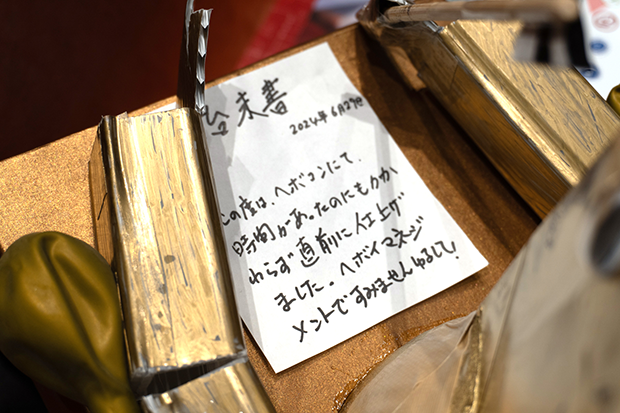 始末書
2024年6月27日
この度は、ヘボコンにて、
時間があったのにもかか
わらず直前に仕上げ
ました。ヘボイマネージ
メントですみませんゆるして!